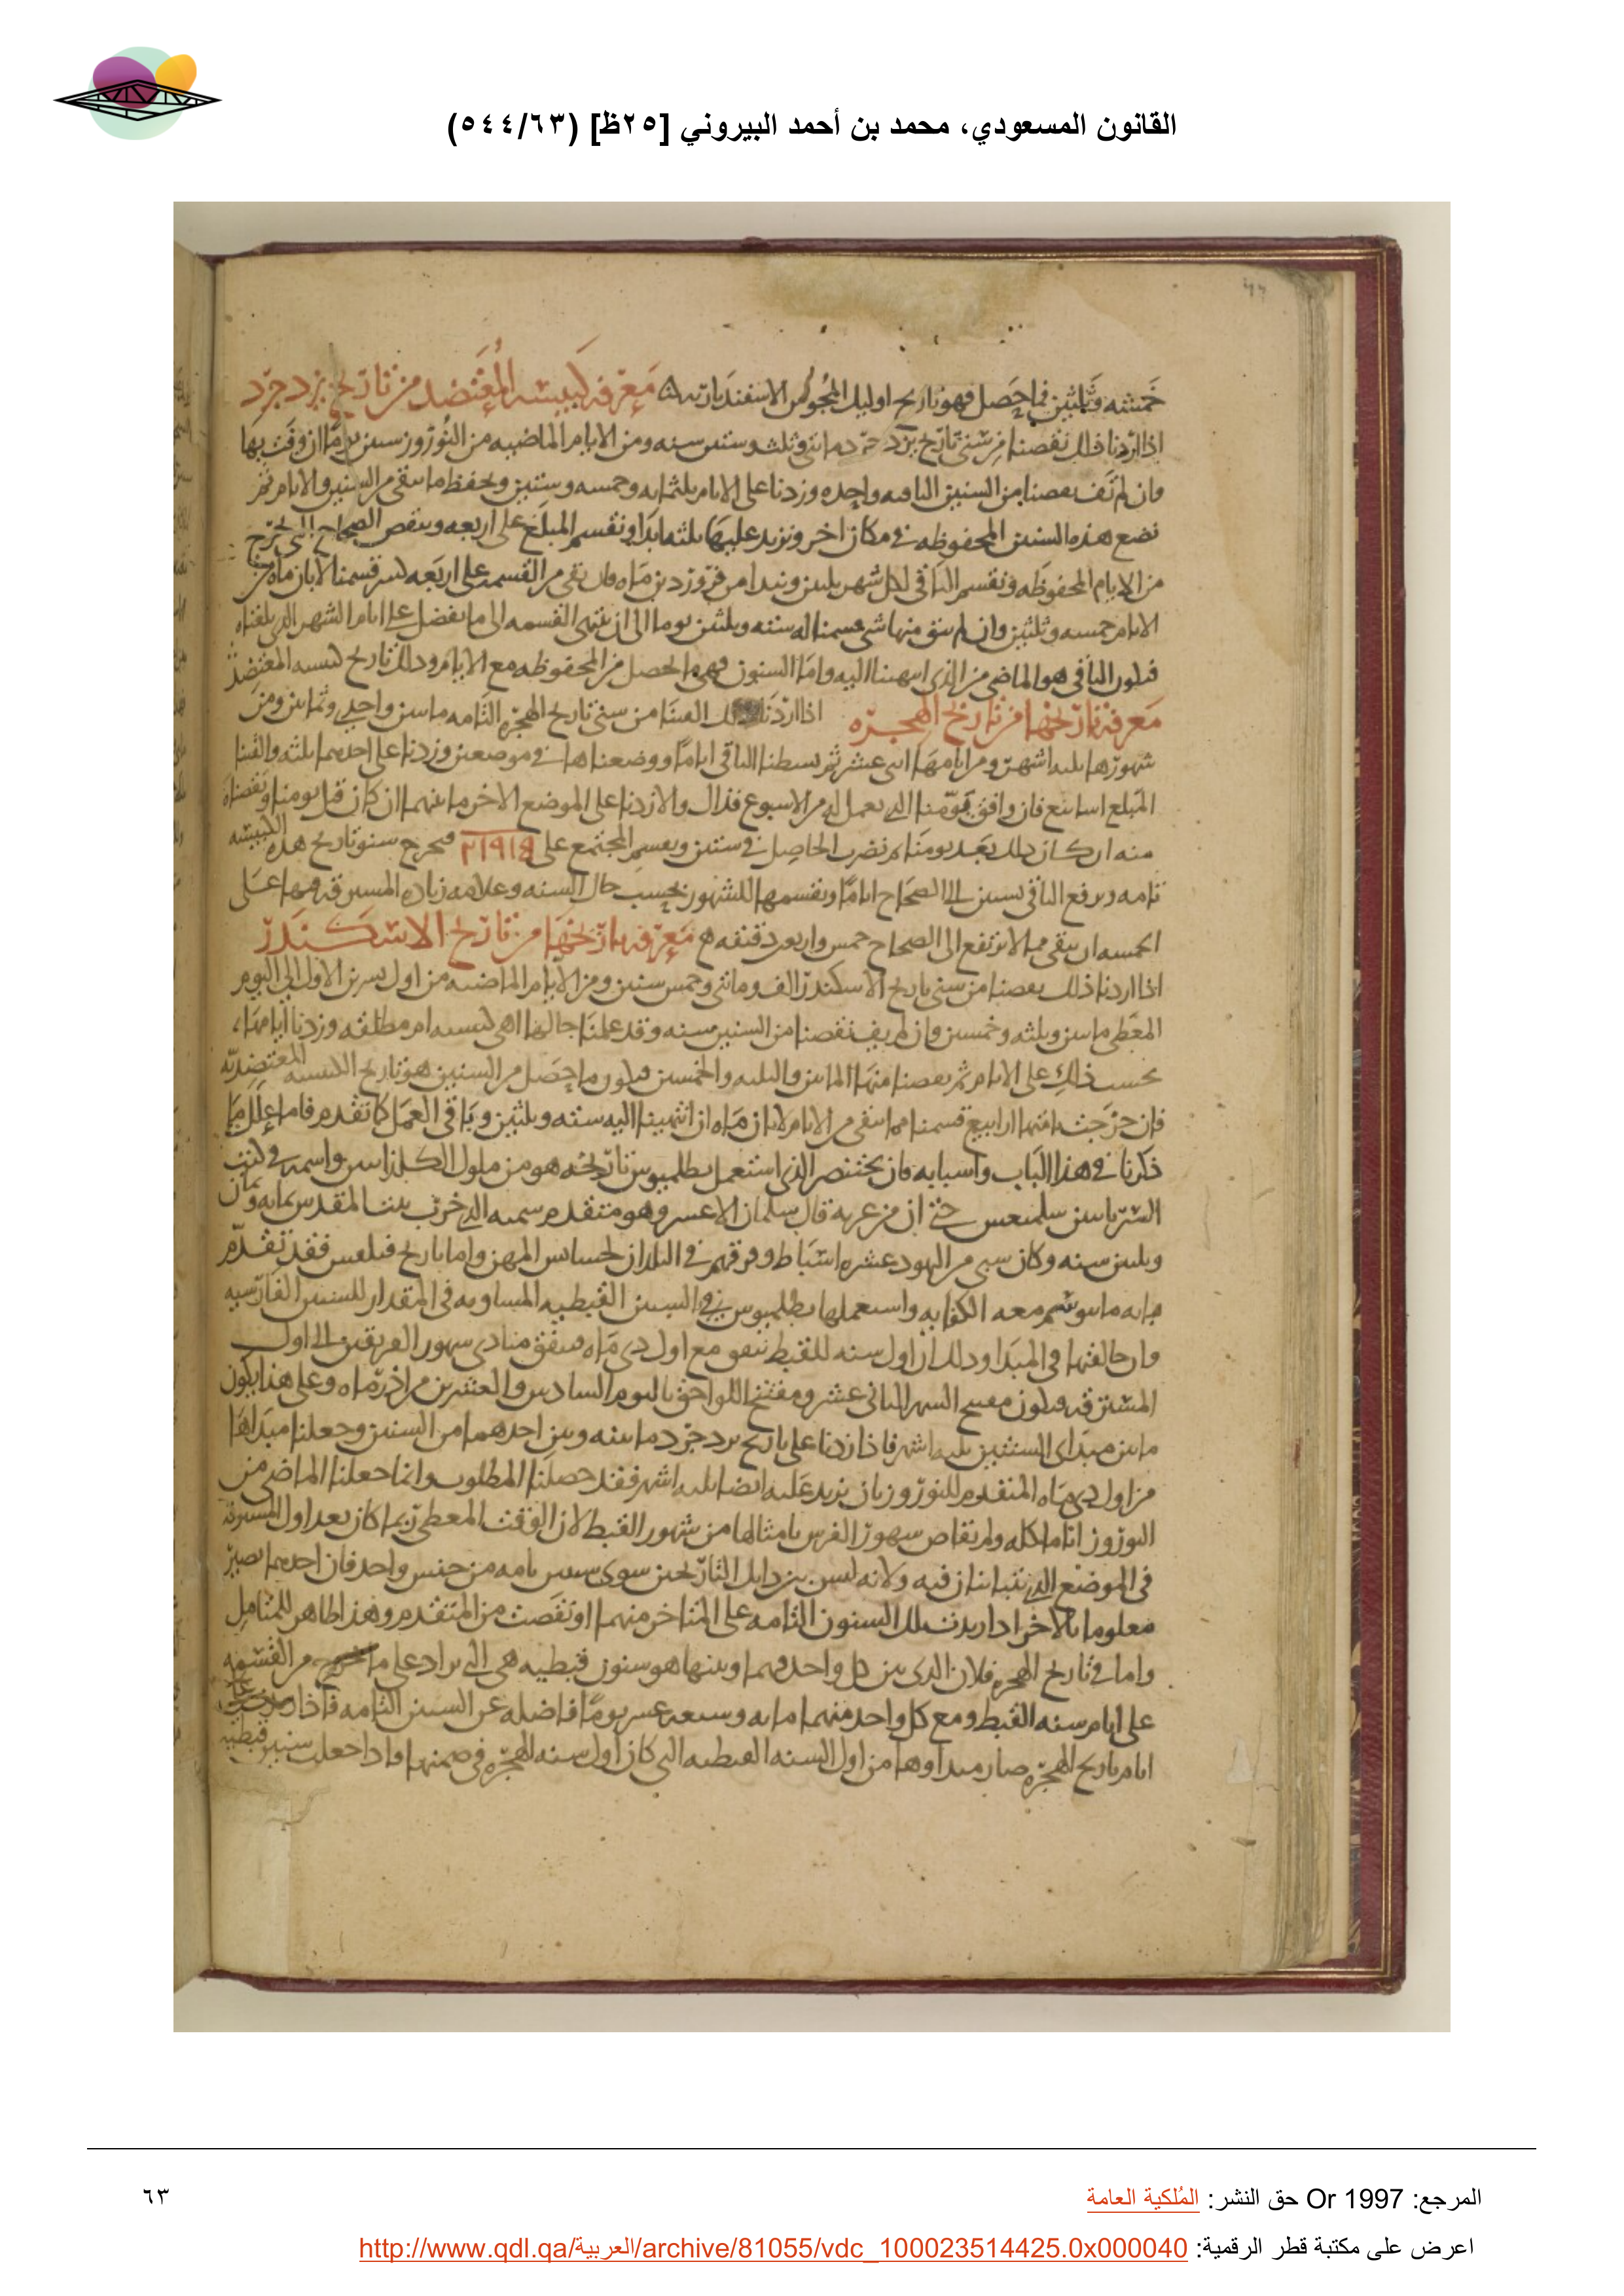 القانون المسعودي، محمد بن أحمد البيروني [٢٥ظ] (٥٤٤/٦٣)
خمسه وثلثين فما حصل فهو تاريخ اوليك المجوس الاسفنديارته معرفه كبيسه المعتضد من تاريخ يزدجرد
اذا اردنا ذلك نقصنا من سنى تاريخ يزدجرد مائتى وثلث وستىن سنه ومن الايام الماضيه من النوروز ستىن يوما ان وفت بها
وان لم تف نقصنا من السنين التامه واحده وزدنا على الايام ثلثمايه وخمسه وستين ونحفظ ما يبقى من السنين والايام ثم
نضع هذه السنىن المحفوظه فى مكان اخر ونزيد عليها ثلثه ابدا ونقسم المبلغ على اربعه وننقص الصحاح التى تخرج
من الايام المحفوظه ونقسم الباقى لكل شهر ثلثىن ونبدا من فروردىن ماه فان بقى من القسمه على اربعه كسر قسمنا لابان ماه من
الايام خمسه وثلثين وان لم يبق منها شى قسمنا له سته وثلثىن يوما الى ان ينتهى القسمه الى ما يفضل على ايام الشهر الذى بلغناه
فيكون الباقى هو الماضى من الذى انتهينا اليه واما السنون فهى ما يحصل من المحفوظه مع الايام وذلك تاريخ كبيسه المعتضد
معرفه تاريخها من تاريخ الهجره اذا اردنا ذلك القينا من سنى تاريخ الهجره التامه مائتىن واحدى وثمانىن ومن
شهورها ثلثه اشهر ومن ايامها اثنى عشر ثم بسطنا الباقى اياما ووضعناها فى موضعىن وزدنا على احدهما ثلثه والقينا
المبلغ اسابيع فان وافق يومنا الذى يعمل له من الاسبوع فذاك والا زدنا على الموضع الاخر ما بينهما ان كان قبل يومنا ونقصناه
منه ان كان ذلك بعد يومنا ثم نضرب الحاصل فى ستىن ونقسم المجتمع على فيخرج سنو تاريخ هذه الكبيسه
تامه ويرفع الباقى بستىن الى الصحاح اياما ونقسمها للشهور بحسب حال السنه وعلامه زياده المسترقه فيها على
الخمسه ان يبقى مما لا يرتفع الى الصحاح خمس واربعون دقيقه معرفه تاريخها من تاريخ الاسكندر
اذا اردنا ذلك نقصنا من سنى تاريخ الاسكندر الف ومائتى وخمس سنين ومن الايام الماضيه من اول تشرىن الاول الى اليوم
المعطى مائتىن وثلثه وخمسىن وان لم يف نقصنا من السنين سنه وقد علمنا حالها اهى كبيسه ام مطلقه وزدنا ايامها
بحسب ذلك على الايام ثم نقصنا منها المائتىن والثلثه والخمسىن فيكون ما حصل من السنين هو تاريخ الكبيسه المعتضديه
فان خرجت منها ارابيع قسمنا مما يبقى من الايام لابان ماه ان انتهينا اليه سته وثلثين وباقى العمل كما تقدم فاما علل ما
ذكرنا فى هذا الباب واسبابه فان بختنصر الذى استعمل بطلميوس تاريخه هو من ملوك الكلدانىىن واسمه فى كتب
السريانىىن حتى ان من عربه قال سلمان الاعسر وهو متقدم سميه الذى خرب بيت المقدس بمايه وثمان
وثلثىن سنه وكان سبى من اليهود عشره اسباط وفرقهم فى البلدان واما تاريخ فيلفس فقد تقدم
وان خالفتها فى المبدا وذلك ان اول سنه للقبط يتفق مع اول دى ماه فيتفق مبادى شهور الفريقىن الى اول
المسترقه فيكون مفتتح الشهر الثانى عشر ومفتتح اللواحق باليوم السادس والعشرين من اذرماه وعلى هذا يكون
ما بىن مبداى السنتين ثلثه اشهر فاذا زدنا على تاريخ يزدجرد ما بينه وبىن احدهما من السنين وجعلنا مبداها
من اول دى ماه المتقدم للنوروز بان نزيد عليه ايضا ثلثه اشهر فقد حصلنا المطلوب وانما جعلنا الماضى من
النوروز اياما كله ولم نقاص شهور الفرس بامثالها من شهور القبط لان الوقت المعطى ربما كان بعد اول المسترقه
فى الموضع الذى يتباينان فيه ولانه ليس بىن ذانك التاريخىن سوى سنىن تامه من جنس واحد فان احدهما يصير
معلوما بالاخر اذا زيدت تلك السنون التامه على المتاخر منهما او نقصت من المتقدم وهذا ظاهر للمتامل
واما فى تاريخ الهجره فلان الذى بىن كل واحد منهما وبينها هو سنون قبطيه هى التى تزاد على ما يخرج من القسمه
على ايام سنه القبط ومع كل واحد منهما مايه وسبعه عشر يوما فاضله عن السنىن التامه فاذا زيدت على
ايام تاريخ الهجره صار مبداوها من اول السنه القبطيه التى كان اول سنه الهجره فى ضمنها واذا جعلت سنين قبطيه
المرجع: Or 1997 حق النشر: المُلكية العامة
٦٣
اعرض على مكتبة قطر الرقمية: http://www.qdl.qa/العربية/archive/81055/vdc_100023514425.0x000040